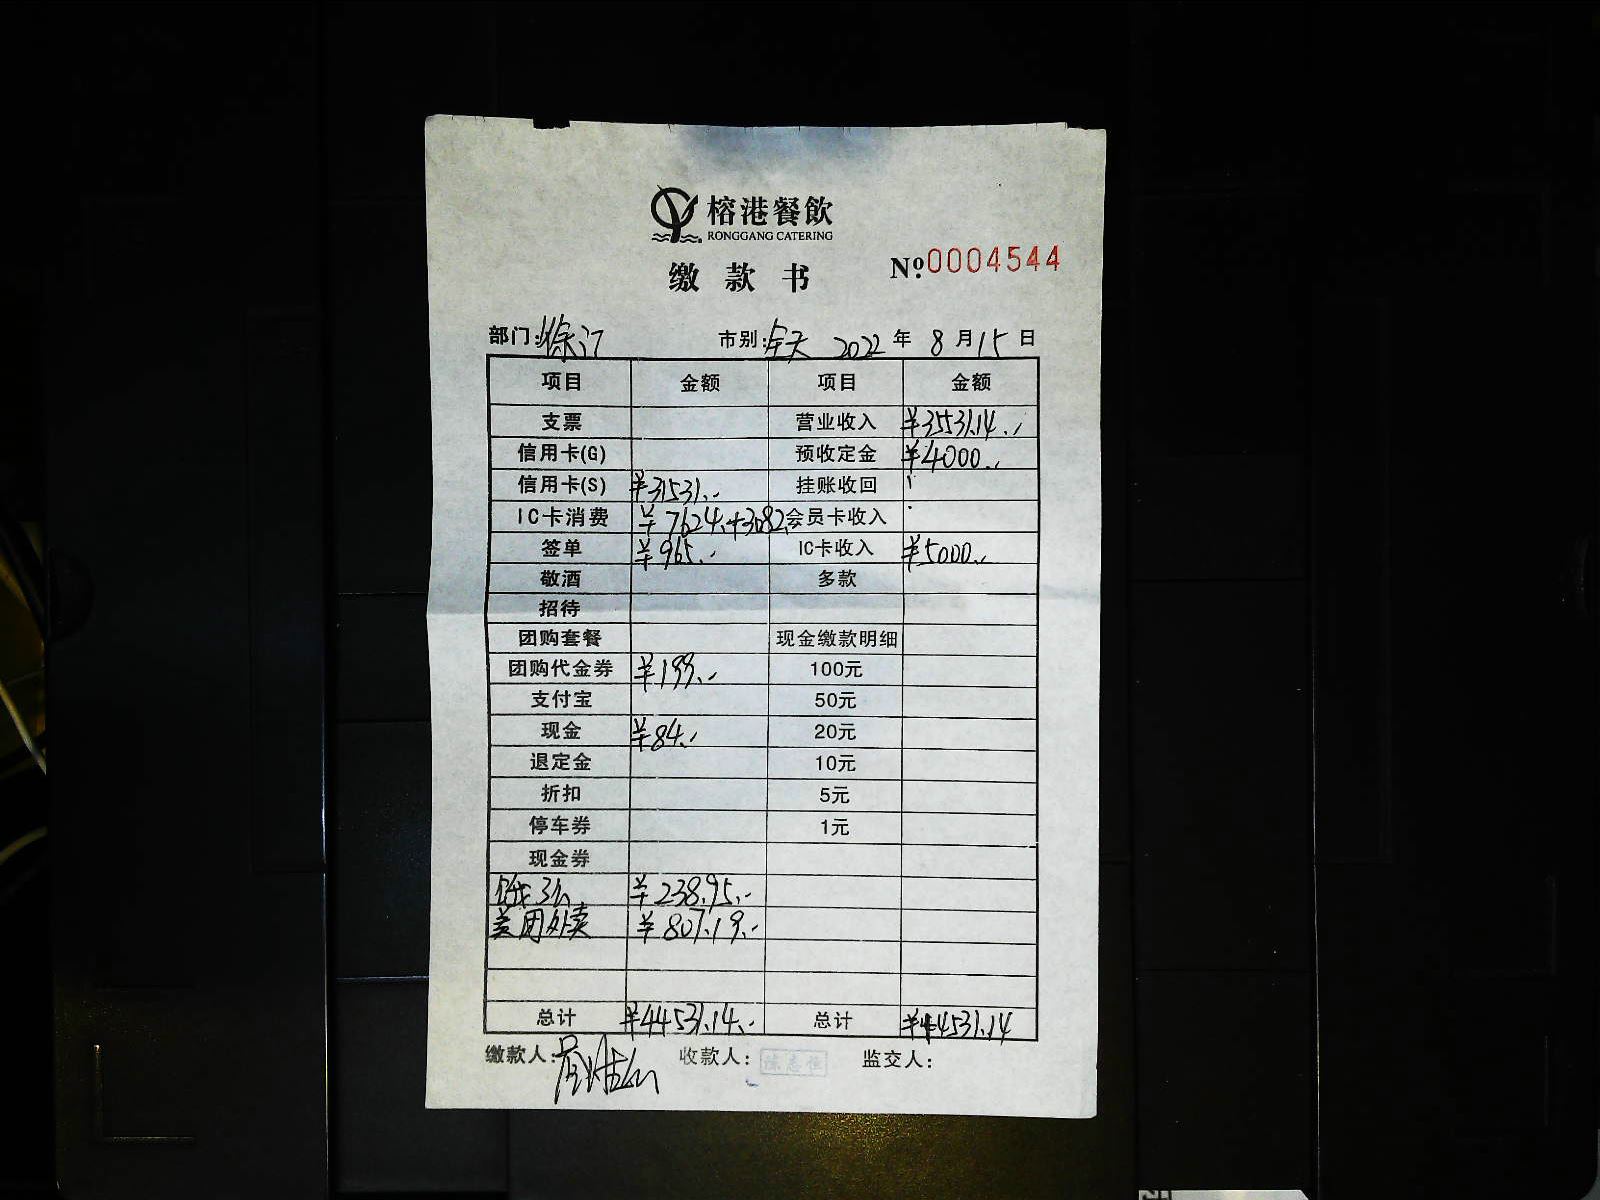 榕港餐飲
RONGGANG CATERING
缴款书
№0004544
部门: 徐汇 市别: 全天 2022 年 8 月 15 日
项目 金额 项目 金额
支票 营业收入 ¥35531.14.-
信用卡(G) 预收定金 ¥4000.-
信用卡(S) ¥31531.- 挂账收回
IC卡消费 ¥7624.+3082. 会员卡收入
签单 ¥965.- IC卡收入 ¥5000.-
敬酒 多款
招待
团购套餐 现金缴款明细
团购代金券 ¥199.- 100元
支付宝 50元
现金 ¥84.- 20元
退定金 10元
折扣 5元
停车券 1元
现金券
饿了么 ¥238.95.-
美团外卖 ¥807.19.-
总计 ¥44531.14.- 总计 ¥44531.14
缴款人: 收款人: 监交人: